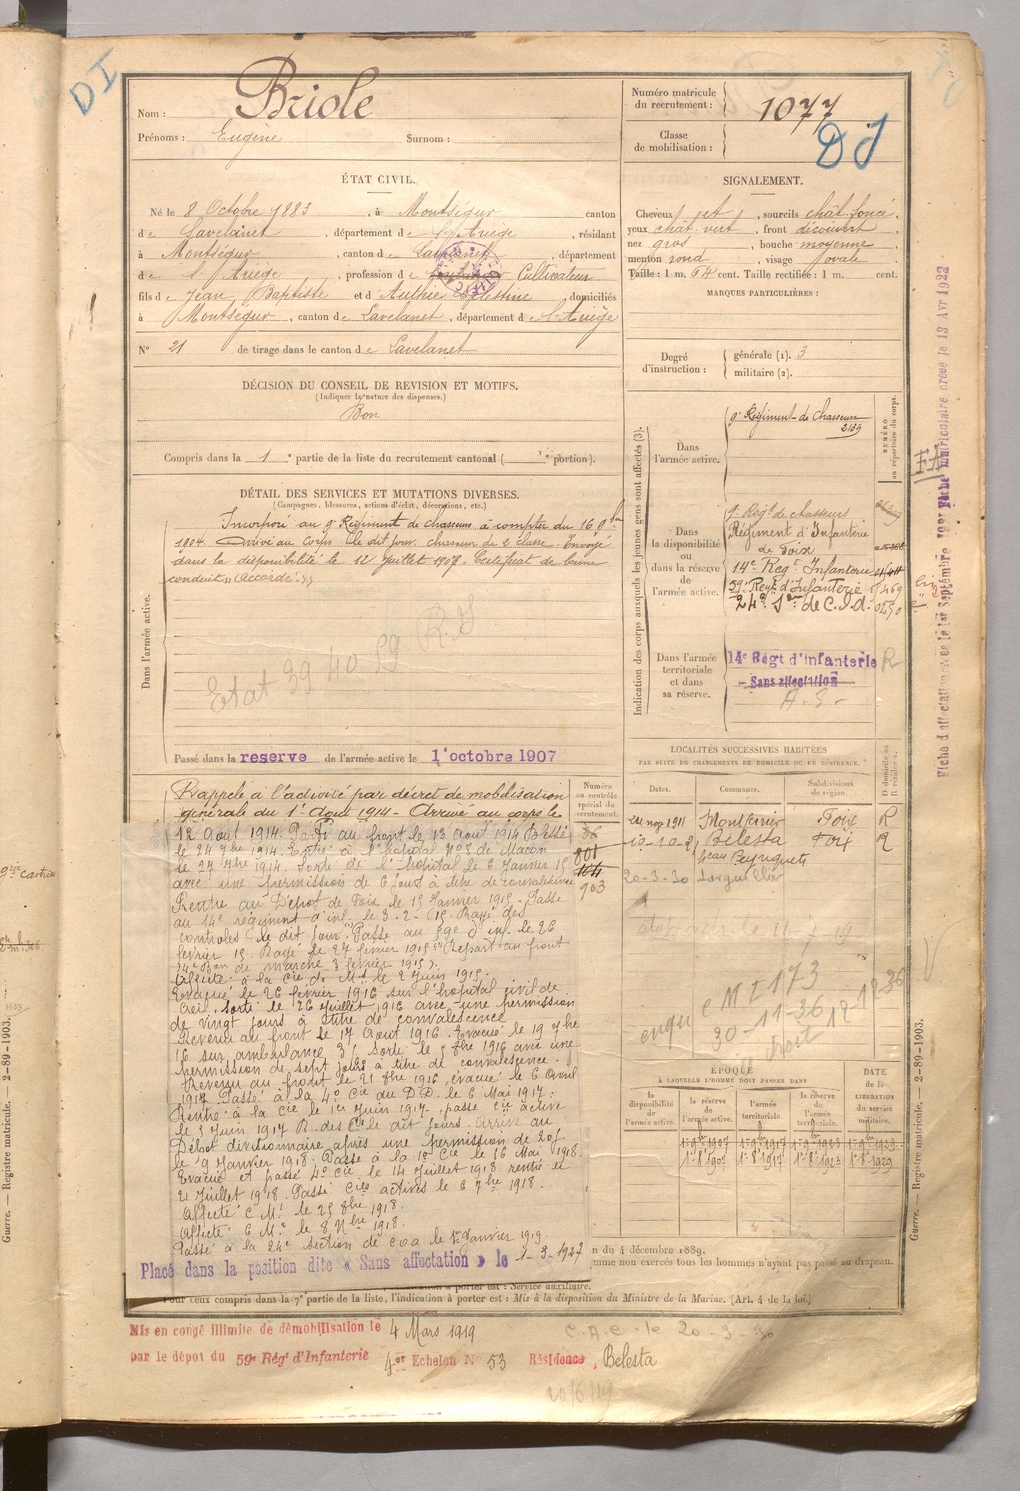 DI
Nom : Briole
Prénoms : Eugène Surnom :
Numéro matricule du recrutement : 1077
Classe de mobilisation :
DI
ÉTAT CIVIL.
Né le 8 Octobre 1883, à Montségur canton
de Lavelanet, département de l'Ariège, résidant
à Montségur, canton de Lavelanet, département
de l'Ariège, profession de Cultivateur
fils de Jean Baptiste et d Authié Célestine, domiciliés
à Montségur, canton de Lavelanet, département de l'Ariège
N° 21 de tirage dans le canton de Lavelanet
SIGNALEMENT.
Cheveux jet, sourcils chât. foncé,
yeux chat. vert, front découvert,
nez gros, bouche moyenne
menton rond, visage ovale
Taille : 1 m. 64 cent. Taille rectifiée : 1 m. cent.
MARQUES PARTICULIÈRES :
Degré d'instruction : générale (1). 3
militaire (2).
DÉCISION DU CONSEIL DE REVISION ET MOTIFS.
(Indiquer la nature des dispenses.)
Bon
Compris dans la 1e partie de la liste du recrutement cantonal ( e portion).
DÉTAIL DES SERVICES ET MUTATIONS DIVERSES.
(Campagnes, blessures, actions d'éclat, décorations, etc.)
Incorporé au 9e Régiment de chasseurs à compter du 16 9bre
1904. Arrivé au Corps le dit jour. chasseur de 2e classe. Envoyé
dans la disponibilité le 12 Juillet 1907. Certificat de bonne
conduite "Accordé".
Dans l'armée active.
Etat 39 40 59 R.S
Passé dans la reserve de l'armée active le 1er octobre 1907
Indication des corps auxquels les jeunes gens sont affectés (3).
NUMÉRO au répertoire du corps.
Dans l'armée active.
9e Régiment de Chasseurs
2189
Dans la disponibilité ou dans la réserve de l'armée active.
9e Régt de chasseurs
Régiment d'Infanterie
de Foix
14e Regt Infanterie
59e Regt d'Infanterie
24e Son de C.O.A.
Dans l'armée territoriale et dans sa réserve.
14e Régt d'infanterie R
Sans affectation
LOCALITÉS SUCCESSIVES HABITÉES
PAR SUITE DE CHANGEMENTS DE DOMICILE OU DE RÉSIDENCE.
Dates. Communes. Subdivisions de région. D domicile ou R résidence.
24 nov 1911 Montferrier Foix R
10-10-21 Bélesta Foix R
20-3-30
Rappelé à l'activité par décret de mobilisation
générale du 1er Août 1914 - Arrivé au corps le
12 Août 1914. Parti au front le 13 Août 1914. Blessé
le 24 7bre 1914. Entré à l'hôpital N° 8 de Macon
le 27 7bre 1914. Sorti de l'hôpital le 6 Janvier 15
avec une permission de 6 jours à titre de convalescence
Rentré au Dépôt de Foix le 15 Janvier 1915. Passé
au 14e régiment d'inf. le 3-2-15. Rayé des
controles le dit jour. Passé au 59e d'inf. le 26
février 15. Rayé le 27 février 1915 (Repart au front
14e Bon de marche 3 février 1915).
Affecté à la Cie de Mt le 2 Juin 1915.
Evacué le 26 février 1916 sur l'hôpital civil de
Creil, sorti le 26 Juillet 1916 avec une permission
de vingt jours à titre de convalescence
Revenu au front le 17 Août 1916. Evacué le 19 7bre
16 sur ambulance 3/ Sorti le 8bre 1916 avec une
permission de sept jours à titre de convalescence.
Revenu au front le 21 8bre 1916, évacué le 6 Avril
1917. Passé à la 4e Cie du D.D. le 6 Mai 1917.
Rentré à la Cie le 1er Juin 1917, passé Cie active
le 3 Juin 1917 R. des C. le dit jour. Arrivé au
Dépôt divisionnaire après une permission de 20 j.
le 9 Janvier 1918. Passé à la 1e Cie le 16 Mai 1918.
Evacué et passé 4e Cie le 14 Juillet 1918 rentré le
21 Juillet 1918. Passé Cies actives le 6 7bre 1918.
Affecté C Mt le 25 8bre 1918.
Affecté C Me le 8 Nbre 1918.
Passé à la 24e section de coa le 1er Janvier 1919.
Placé dans la position dite « Sans affectation » le 1-3-1927
Numéro au contrôle spécial du recrutement.
36
801
903
30-11-36
ÉPOQUE
À LAQUELLE L'HOMME DOIT PASSER DANS
la disponibilité de l'armée active. la réserve de l'armée active. l'armée territoriale. la réserve de l'armée territoriale. DATE de la LIBÉRATION du service militaire.
n du 4 décembre 1889.
mme non exercés tous les hommes n'ayant pas passé au drapeau.
à porter est : Service auxiliaire.
Pour ceux compris dans la 7e partie de la liste, l'indication à porter est : Mis à la disposition du Ministre de la Marine. (Art. 4 de la loi.)
Mis en congé illimité de démobilisation le 4 Mars 1919
par le dépôt du 59e Régt d'Infanterie 4er Echelon N° 53 Résidence, Bélesta
20/6/19
Guerre. — Registre matricule. 2-89-1903.
Guerre. — Registre matricule. — 2-89-1903.